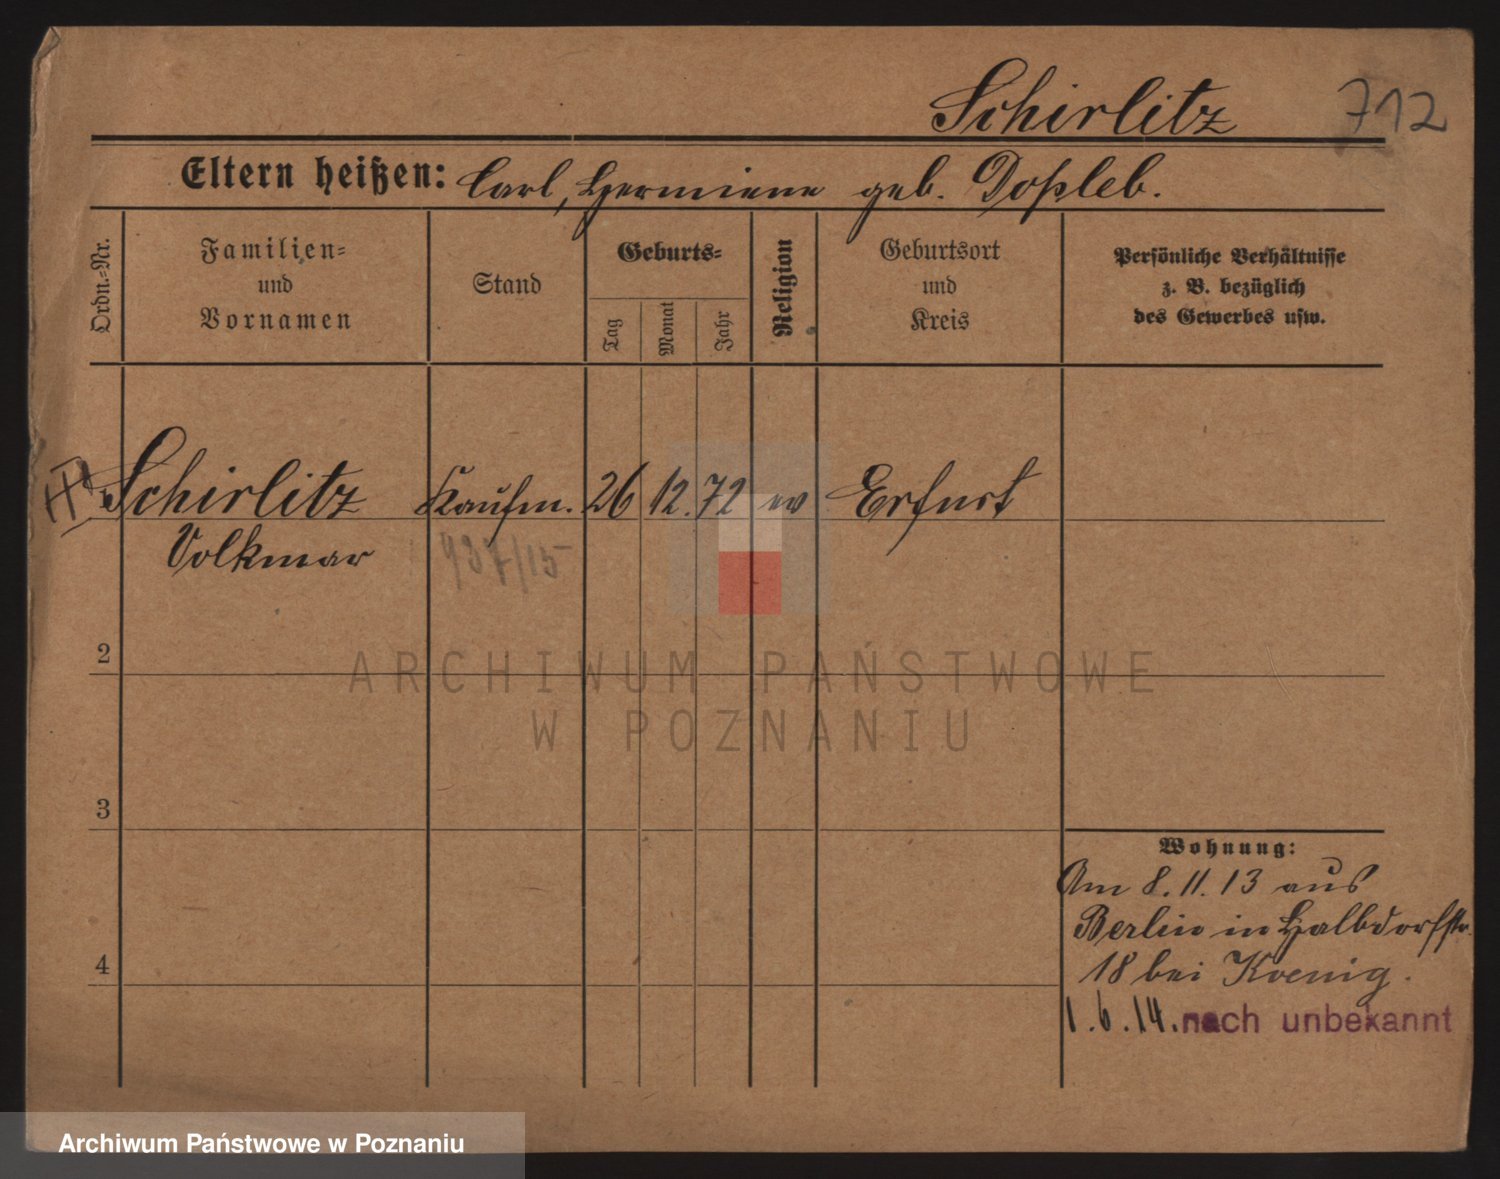 Schirlitz 712
Eltern heißen: Carl, Hermiene geb. Doßleb.
Ordn.-Nr.
Familien-
und
Vornamen
Stand
Geburts-
Tag
Monat
Jahr
Religion
Geburtsort
und
Kreis
Persönliche Verhältnisse
z. B. bezüglich
des Gewerbes usw.
Schirlitz Kaufm. 26 12. 72 ev Erfurt
Volkmar 937/15
2
3
4
Wohnung:
Am 8. 11. 13 aus
Berlin in Halbdorfstr.
18 bei Koenig.
1. 6. 14. nach unbekannt
ARCHIWUM PAŃSTWOWE
W POZNANIU
Archiwum Państwowe w Poznaniu